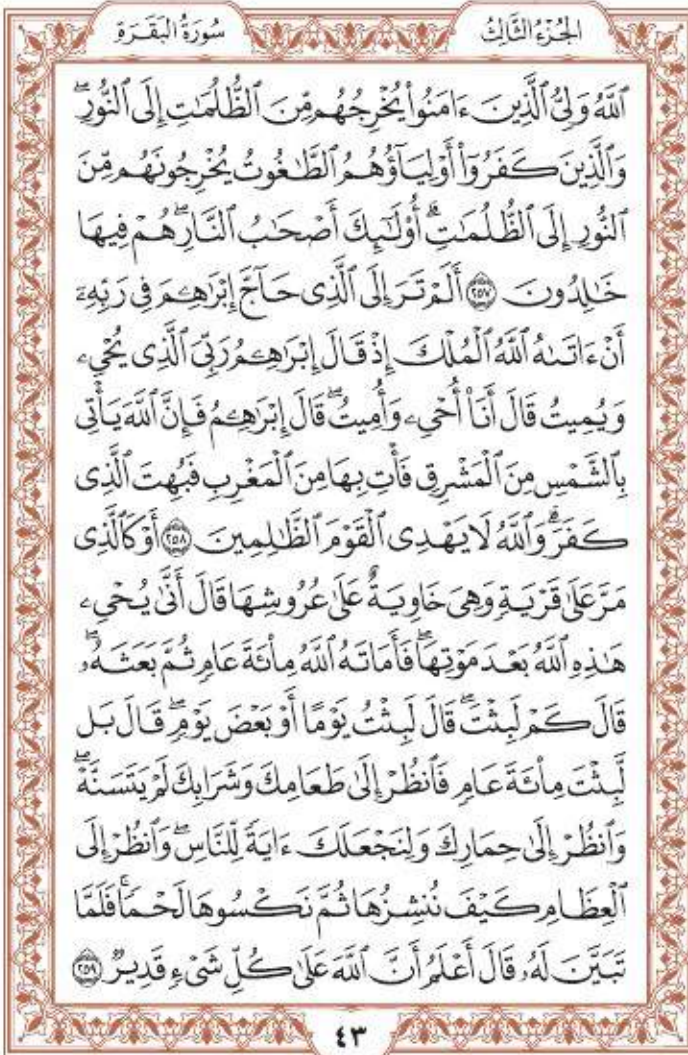 الجُزْءُ الثَّالِثُ
سُورَةُ البَقَرَةِ
ٱللَّهُ وَلِيُّ ٱلَّذِينَ ءَامَنُواْ يُخْرِجُهُم مِّنَ ٱلظُّلُمَٰتِ إِلَى ٱلنُّورِۖ
وَٱلَّذِينَ كَفَرُوٓاْ أَوْلِيَآؤُهُمُ ٱلطَّٰغُوتُ يُخْرِجُونَهُم مِّنَ
ٱلنُّورِ إِلَى ٱلظُّلُمَٰتِۗ أُوْلَٰٓئِكَ أَصْحَٰبُ ٱلنَّارِۖ هُمْ فِيهَا
خَٰلِدُونَ ٢٥٧ أَلَمْ تَرَ إِلَى ٱلَّذِي حَآجَّ إِبْرَٰهِـۧمَ فِي رَبِّهِۦٓ
أَنْ ءَاتَىٰهُ ٱللَّهُ ٱلْمُلْكَ إِذْ قَالَ إِبْرَٰهِـۧمُ رَبِّيَ ٱلَّذِي يُحْيِۦ
وَيُمِيتُ قَالَ أَنَا۠ أُحْيِۦ وَأُمِيتُۖ قَالَ إِبْرَٰهِـۧمُ فَإِنَّ ٱللَّهَ يَأْتِي
بِٱلشَّمْسِ مِنَ ٱلْمَشْرِقِ فَأْتِ بِهَا مِنَ ٱلْمَغْرِبِ فَبُهِتَ ٱلَّذِي
كَفَرَۗ وَٱللَّهُ لَا يَهْدِي ٱلْقَوْمَ ٱلظَّٰلِمِينَ ٢٥٨ أَوْ كَٱلَّذِي
مَرَّ عَلَىٰ قَرْيَةٖ وَهِيَ خَاوِيَةٌ عَلَىٰ عُرُوشِهَا قَالَ أَنَّىٰ يُحْيِۦ
هَٰذِهِ ٱللَّهُ بَعْدَ مَوْتِهَاۖ فَأَمَاتَهُ ٱللَّهُ مِاْئَةَ عَامٖ ثُمَّ بَعَثَهُۥۖ
قَالَ كَمْ لَبِثْتَۖ قَالَ لَبِثْتُ يَوْمًا أَوْ بَعْضَ يَوْمٖۖ قَالَ بَل
لَّبِثْتَ مِاْئَةَ عَامٖ فَٱنظُرْ إِلَىٰ طَعَامِكَ وَشَرَابِكَ لَمْ يَتَسَنَّهْۖ
وَٱنظُرْ إِلَىٰ حِمَارِكَ وَلِنَجْعَلَكَ ءَايَةٗ لِّلنَّاسِۖ وَٱنظُرْ إِلَى
ٱلْعِظَامِ كَيْفَ نُنشِزُهَا ثُمَّ نَكْسُوهَا لَحْمٗاۚ فَلَمَّا
تَبَيَّنَ لَهُۥ قَالَ أَعْلَمُ أَنَّ ٱللَّهَ عَلَىٰ كُلِّ شَيْءٖ قَدِيرٞ ٢٥٩
٤٣